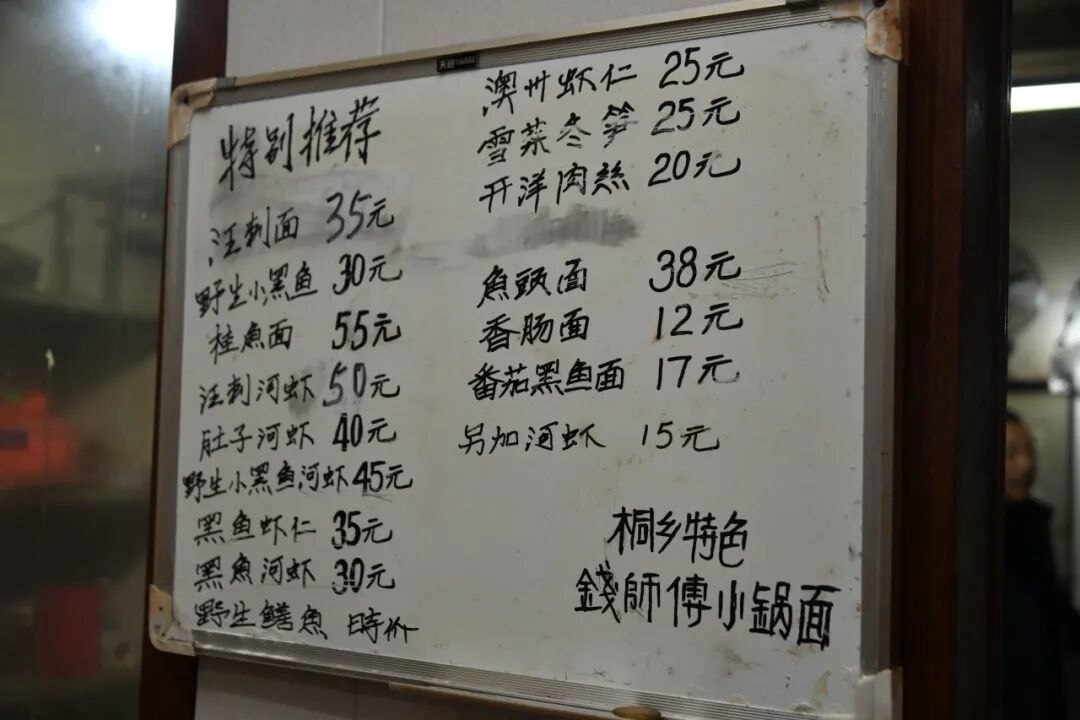 特别推荐
汪刺面 35元
野生小黑鱼 30元
桂魚面 55元
汪刺河虾 50元
肚子河虾 40元
野生小黑鱼河虾 45元
黑鱼虾仁 35元
黑魚河虾 30元
野生鳝魚 時价
澳州虾仁 25元
雪菜冬笋 25元
开洋肉絲 20元
魚頭面 38元
香肠面 12元
番茄黑鱼面 17元
另加河虾 15元
桐乡特色
錢師傅小锅面